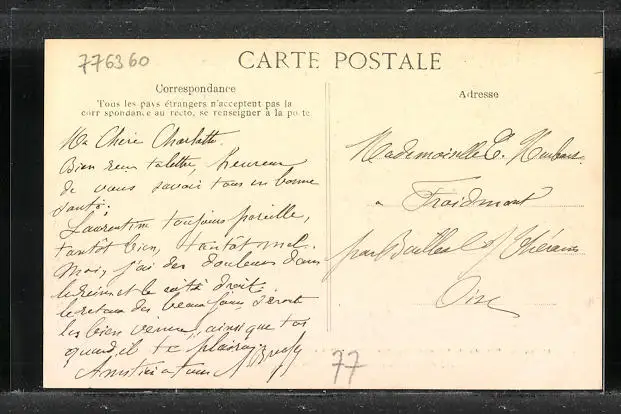 776360
CARTE POSTALE
Correspondance
Tous les pays étrangers n'acceptent pas la
correspondance au recto, se renseigner à la poste
Ma Chère Charlotte.
Bien reçu ta lettre, heureux
de vous savoir tous en bonne
santé;
Laurentine toujours pareille,
tantôt bien, tantôt mal.
Moi, j'ai des douleurs dans
les reins et le côté droit.
le retour des beaux jours seront
les bien venus, ainsi que toi
quand il te plaira;
Amitiés à tous
Adresse
Mademoiselle C.
à Froidmont
par Bailleul s/ Thérain
Oise
77